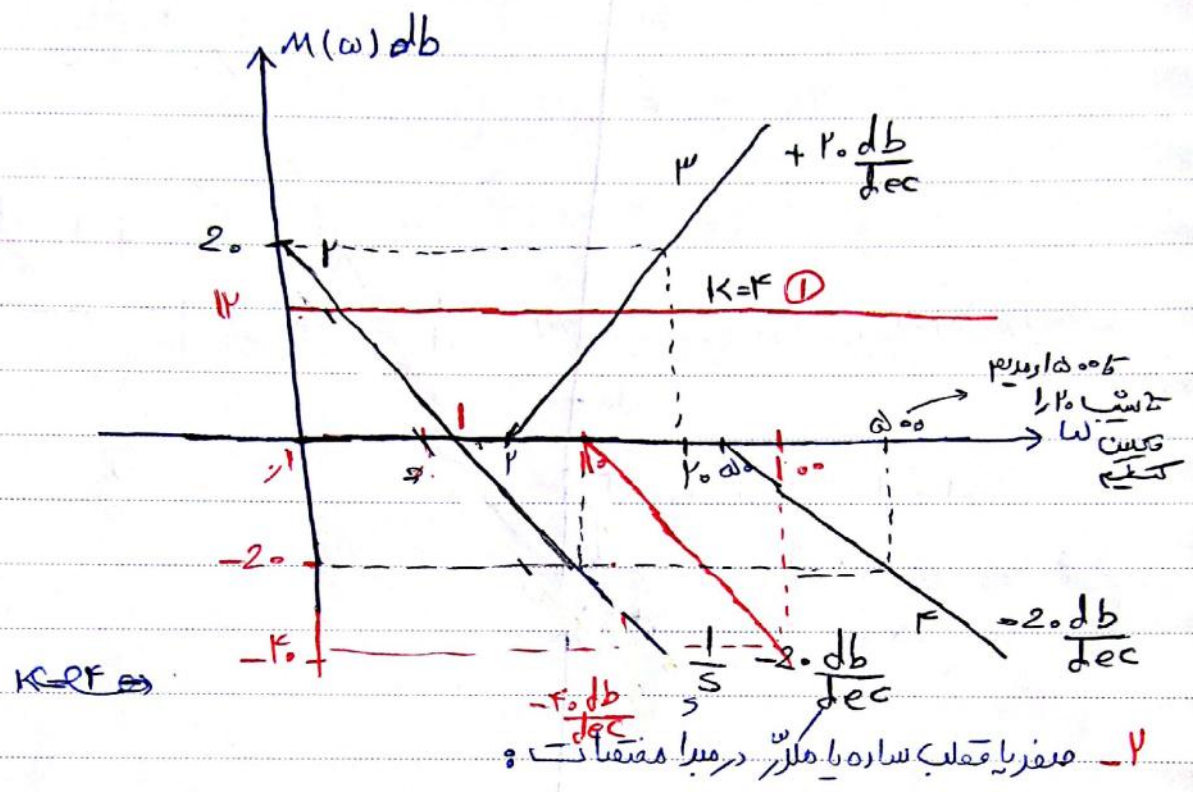 M(ω) db
۳
+ ۲۰ db/dec
2۰
۲
K=۴ ①
۱۲
تا ۵۰۰ اومدیم
تا شیب ۲۰ را
کنیم
۵۰۰
ω
۰٫۱
۱
۲
۱۰
۲۰
۵۰
۱۰۰
-2۰
۴
-2۰ db/dec
-۴۰
1/s
-2۰ db/dec
-۴۰ db/dec
۲- صفر یا قطب ساده یا مکرّر در مبدا مختصات :